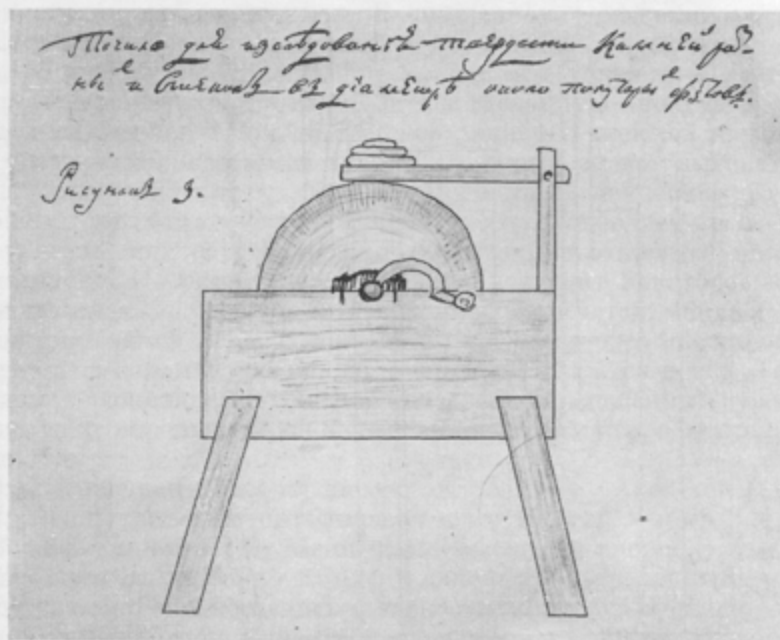 Точило для изслѣдованїя твердости Камней раз-
ных и Стеколъ въ дїаметрѣ около полуторых футовъ.
Рисунокъ 3.